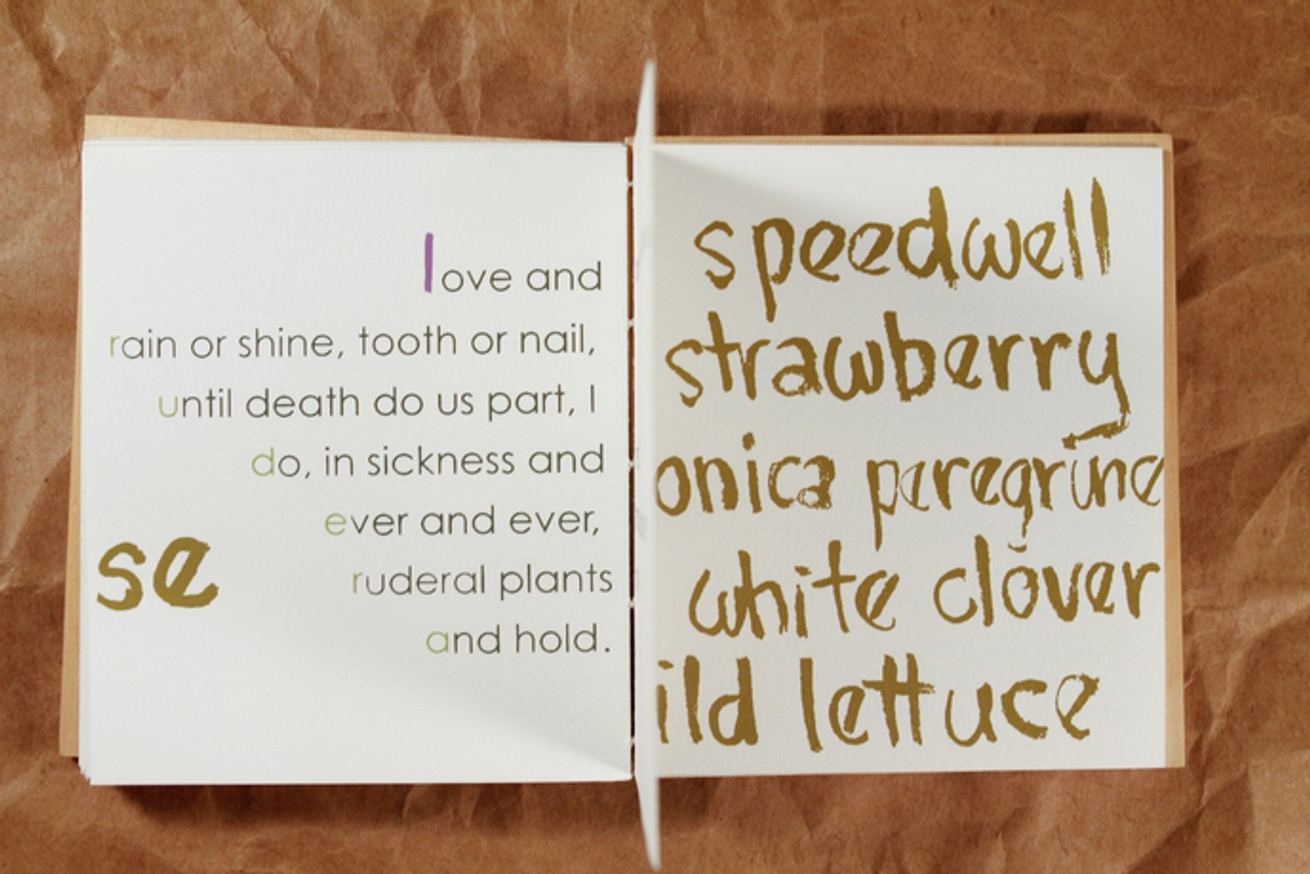 love and
rain or shine, tooth or nail,
until death do us part, I
do, in sickness and
ever and ever,
se
ruderal plants
and hold.
speedwell
strawberry
onica peregrine
white clover
ild lettuce